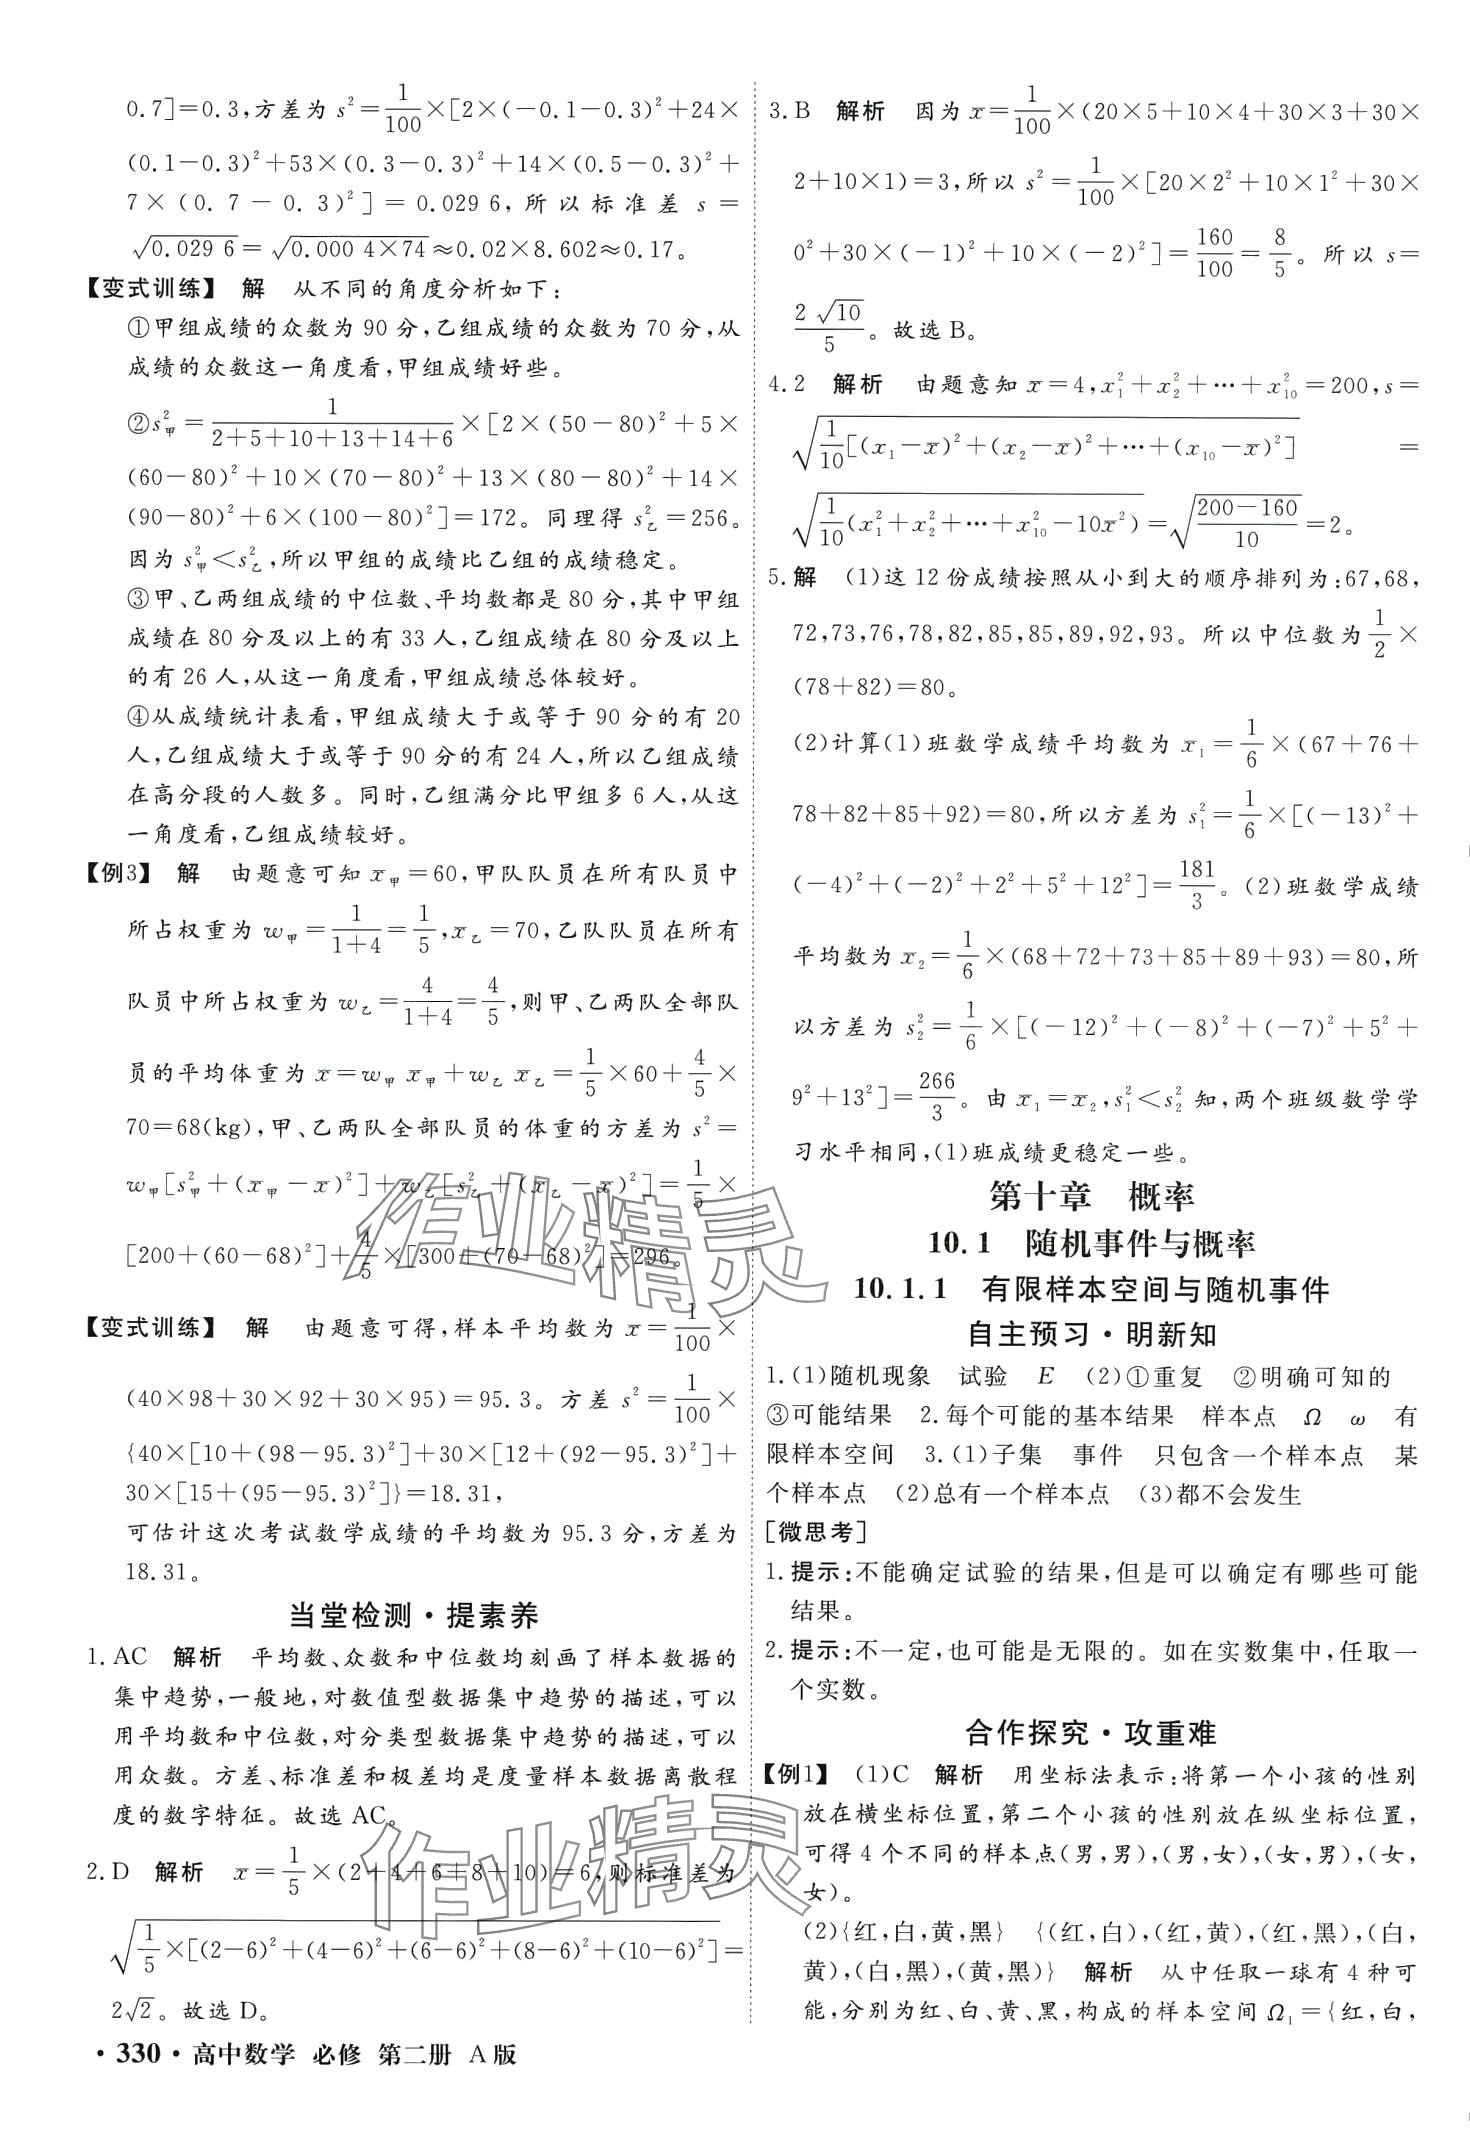 0.7]=0.3,方差为 s²=1/100×[2×(-0.1-0.3)²+24×
(0.1-0.3)²+53×(0.3-0.3)²+14×(0.5-0.3)²+
7×(0.7-0.3)²]=0.029 6,所以标准差 s=
√0.029 6=√0.000 4×74≈0.02×8.602≈0.17。
【变式训练】 解 从不同的角度分析如下:
①甲组成绩的众数为 90 分,乙组成绩的众数为 70 分,从
成绩的众数这一角度看,甲组成绩好些。
②s²甲=1/(2+5+10+13+14+6)×[2×(50-80)²+5×
(60-80)²+10×(70-80)²+13×(80-80)²+14×
(90-80)²+6×(100-80)²]=172。同理得 s²乙=256。
因为 s²甲<s²乙,所以甲组的成绩比乙组的成绩稳定。
③甲、乙两组成绩的中位数、平均数都是 80 分,其中甲组
成绩在 80 分及以上的有 33 人,乙组成绩在 80 分及以上
的有 26 人,从这一角度看,甲组成绩总体较好。
④从成绩统计表看,甲组成绩大于或等于 90 分的有 20
人,乙组成绩大于或等于 90 分的有 24 人,所以乙组成绩
在高分段的人数多。同时,乙组满分比甲组多 6 人,从这
一角度看,乙组成绩较好。
【例3】 解 由题意可知 x̄甲=60,甲队队员在所有队员中
所占权重为 w甲=1/(1+4)=1/5,x̄乙=70,乙队队员在所有
队员中所占权重为 w乙=4/(1+4)=4/5,则甲、乙两队全部队
员的平均体重为 x̄=w甲 x̄甲+w乙 x̄乙=1/5×60+4/5×
70=68(kg),甲、乙两队全部队员的体重的方差为 s²=
w甲[s²甲+(x̄甲-x̄)²]+w乙[s²乙+(x̄乙-x̄)²]=1/5×
[200+(60-68)²]+4/5×[300+(70-68)²]=296。
【变式训练】 解 由题意可得,样本平均数为 x̄=1/100×
(40×98+30×92+30×95)=95.3。方差 s²=1/100×
{40×[10+(98-95.3)²]+30×[12+(92-95.3)²]+
30×[15+(95-95.3)²]}=18.31,
可估计这次考试数学成绩的平均数为 95.3 分,方差为
18.31。
当堂检测·提素养
1. AC 解析 平均数、众数和中位数均刻画了样本数据的
集中趋势,一般地,对数值型数据集中趋势的描述,可以
用平均数和中位数,对分类型数据集中趋势的描述,可以
用众数。方差、标准差和极差均是度量样本数据离散程
度的数字特征。故选 AC。
2. D 解析 x̄=1/5×(2+4+6+8+10)=6,则标准差为
√(1/5×[(2-6)²+(4-6)²+(6-6)²+(8-6)²+(10-6)²])=
2√2。故选 D。
· 330 · 高中数学 必修 第二册 A版
3. B 解析 因为 x̄=1/100×(20×5+10×4+30×3+30×
2+10×1)=3,所以 s²=1/100×[20×2²+10×1²+30×
0²+30×(-1)²+10×(-2)²]=160/100=8/5。所以 s=
2√10/5。故选 B。
4. 2 解析 由题意知 x̄=4,x₁²+x₂²+…+x₁₀²=200,s=
√(1/10[(x₁-x̄)²+(x₂-x̄)²+…+(x₁₀-x̄)²]) =
√(1/10(x₁²+x₂²+…+x₁₀²-10x̄²))=√((200-160)/10)=2。
5. 解 (1)这 12 份成绩按照从小到大的顺序排列为:67,68,
72,73,76,78,82,85,85,89,92,93。所以中位数为1/2×
(78+82)=80。
(2)计算(1)班数学成绩平均数为 x̄₁=1/6×(67+76+
78+82+85+92)=80,所以方差为 s₁²=1/6×[(-13)²+
(-4)²+(-2)²+2²+5²+12²]=181/3。(2)班数学成绩
平均数为 x̄₂=1/6×(68+72+73+85+89+93)=80,所
以方差为 s₂²=1/6×[(-12)²+(-8)²+(-7)²+5²+
9²+13²]=266/3。由 x̄₁=x̄₂,s₁²<s₂² 知,两个班级数学学
习水平相同,(1)班成绩更稳定一些。
第十章 概率
10.1 随机事件与概率
10.1.1 有限样本空间与随机事件
自主预习·明新知
1. (1)随机现象 试验 E (2)①重复 ②明确可知的
③可能结果 2. 每个可能的基本结果 样本点 Ω ω 有
限样本空间 3. (1)子集 事件 只包含一个样本点 某
个样本点 (2)总有一个样本点 (3)都不会发生
[微思考]
1. 提示:不能确定试验的结果,但是可以确定有哪些可能
结果。
2. 提示:不一定,也可能是无限的。如在实数集中,任取一
个实数。
合作探究·攻重难
【例1】 (1)C 解析 用坐标法表示:将第一个小孩的性别
放在横坐标位置,第二个小孩的性别放在纵坐标位置,
可得 4 个不同的样本点(男,男),(男,女),(女,男),(女,
女)。
(2){红,白,黄,黑} {(红,白),(红,黄),(红,黑),(白,
黄),(白,黑),(黄,黑)} 解析 从中任取一球有 4 种可
能,分别为红、白、黄、黑,构成的样本空间 Ω₁={红,白,
作业精灵
作业精灵